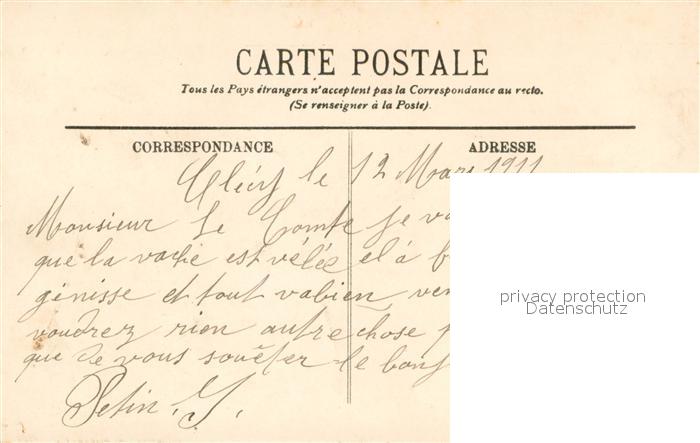 CARTE POSTALE
Tous les Pays étrangers n'acceptent pas la Correspondance au recto.
(Se renseigner à la Poste).
CORRESPONDANCE
ADRESSE
le 12 Mars 1911
Monsieur Le Comte je
que la vache est vélée el à
génisse et tout vabien
voudrez rien autre chose
que de vous souêter le
privacy protection
Datenschutz